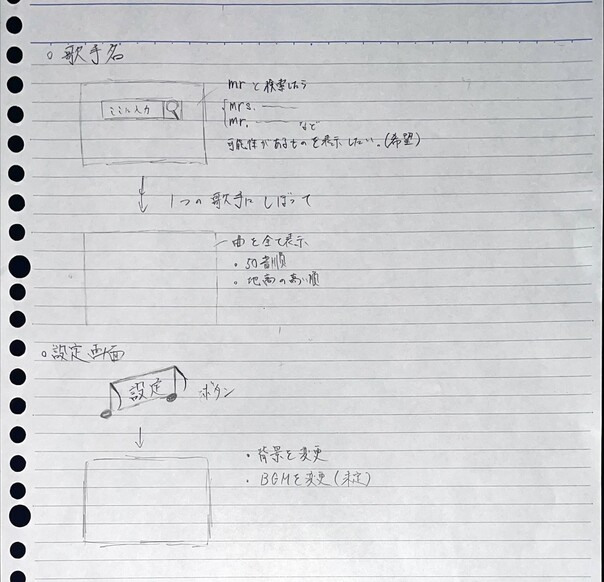 ○ 歌手名
mrと検索したら
ここに入力
mrs. ―――
mr. ―――など
可能性があるものを表示したい。(希望)
1つの歌手にしぼって
曲を全て表示
・50音順
・地高の高い順
○設定画面
設定 ボタン
・背景を変更
・BGMを変更(未定)